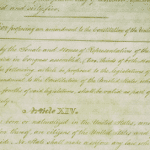 following an amendment to the Constitution of the United
by the Senate and House of Representatives of the
in Congress assembled, (two thirds of both
the following article be proposed to the legislatures of
to the Constitution of the United States,
of said Legislatures, shall be valid as part of
Article XIV.
or naturalized in the United States, and
thereof, are citizens of the United States and of
No State shall make or enforce any law